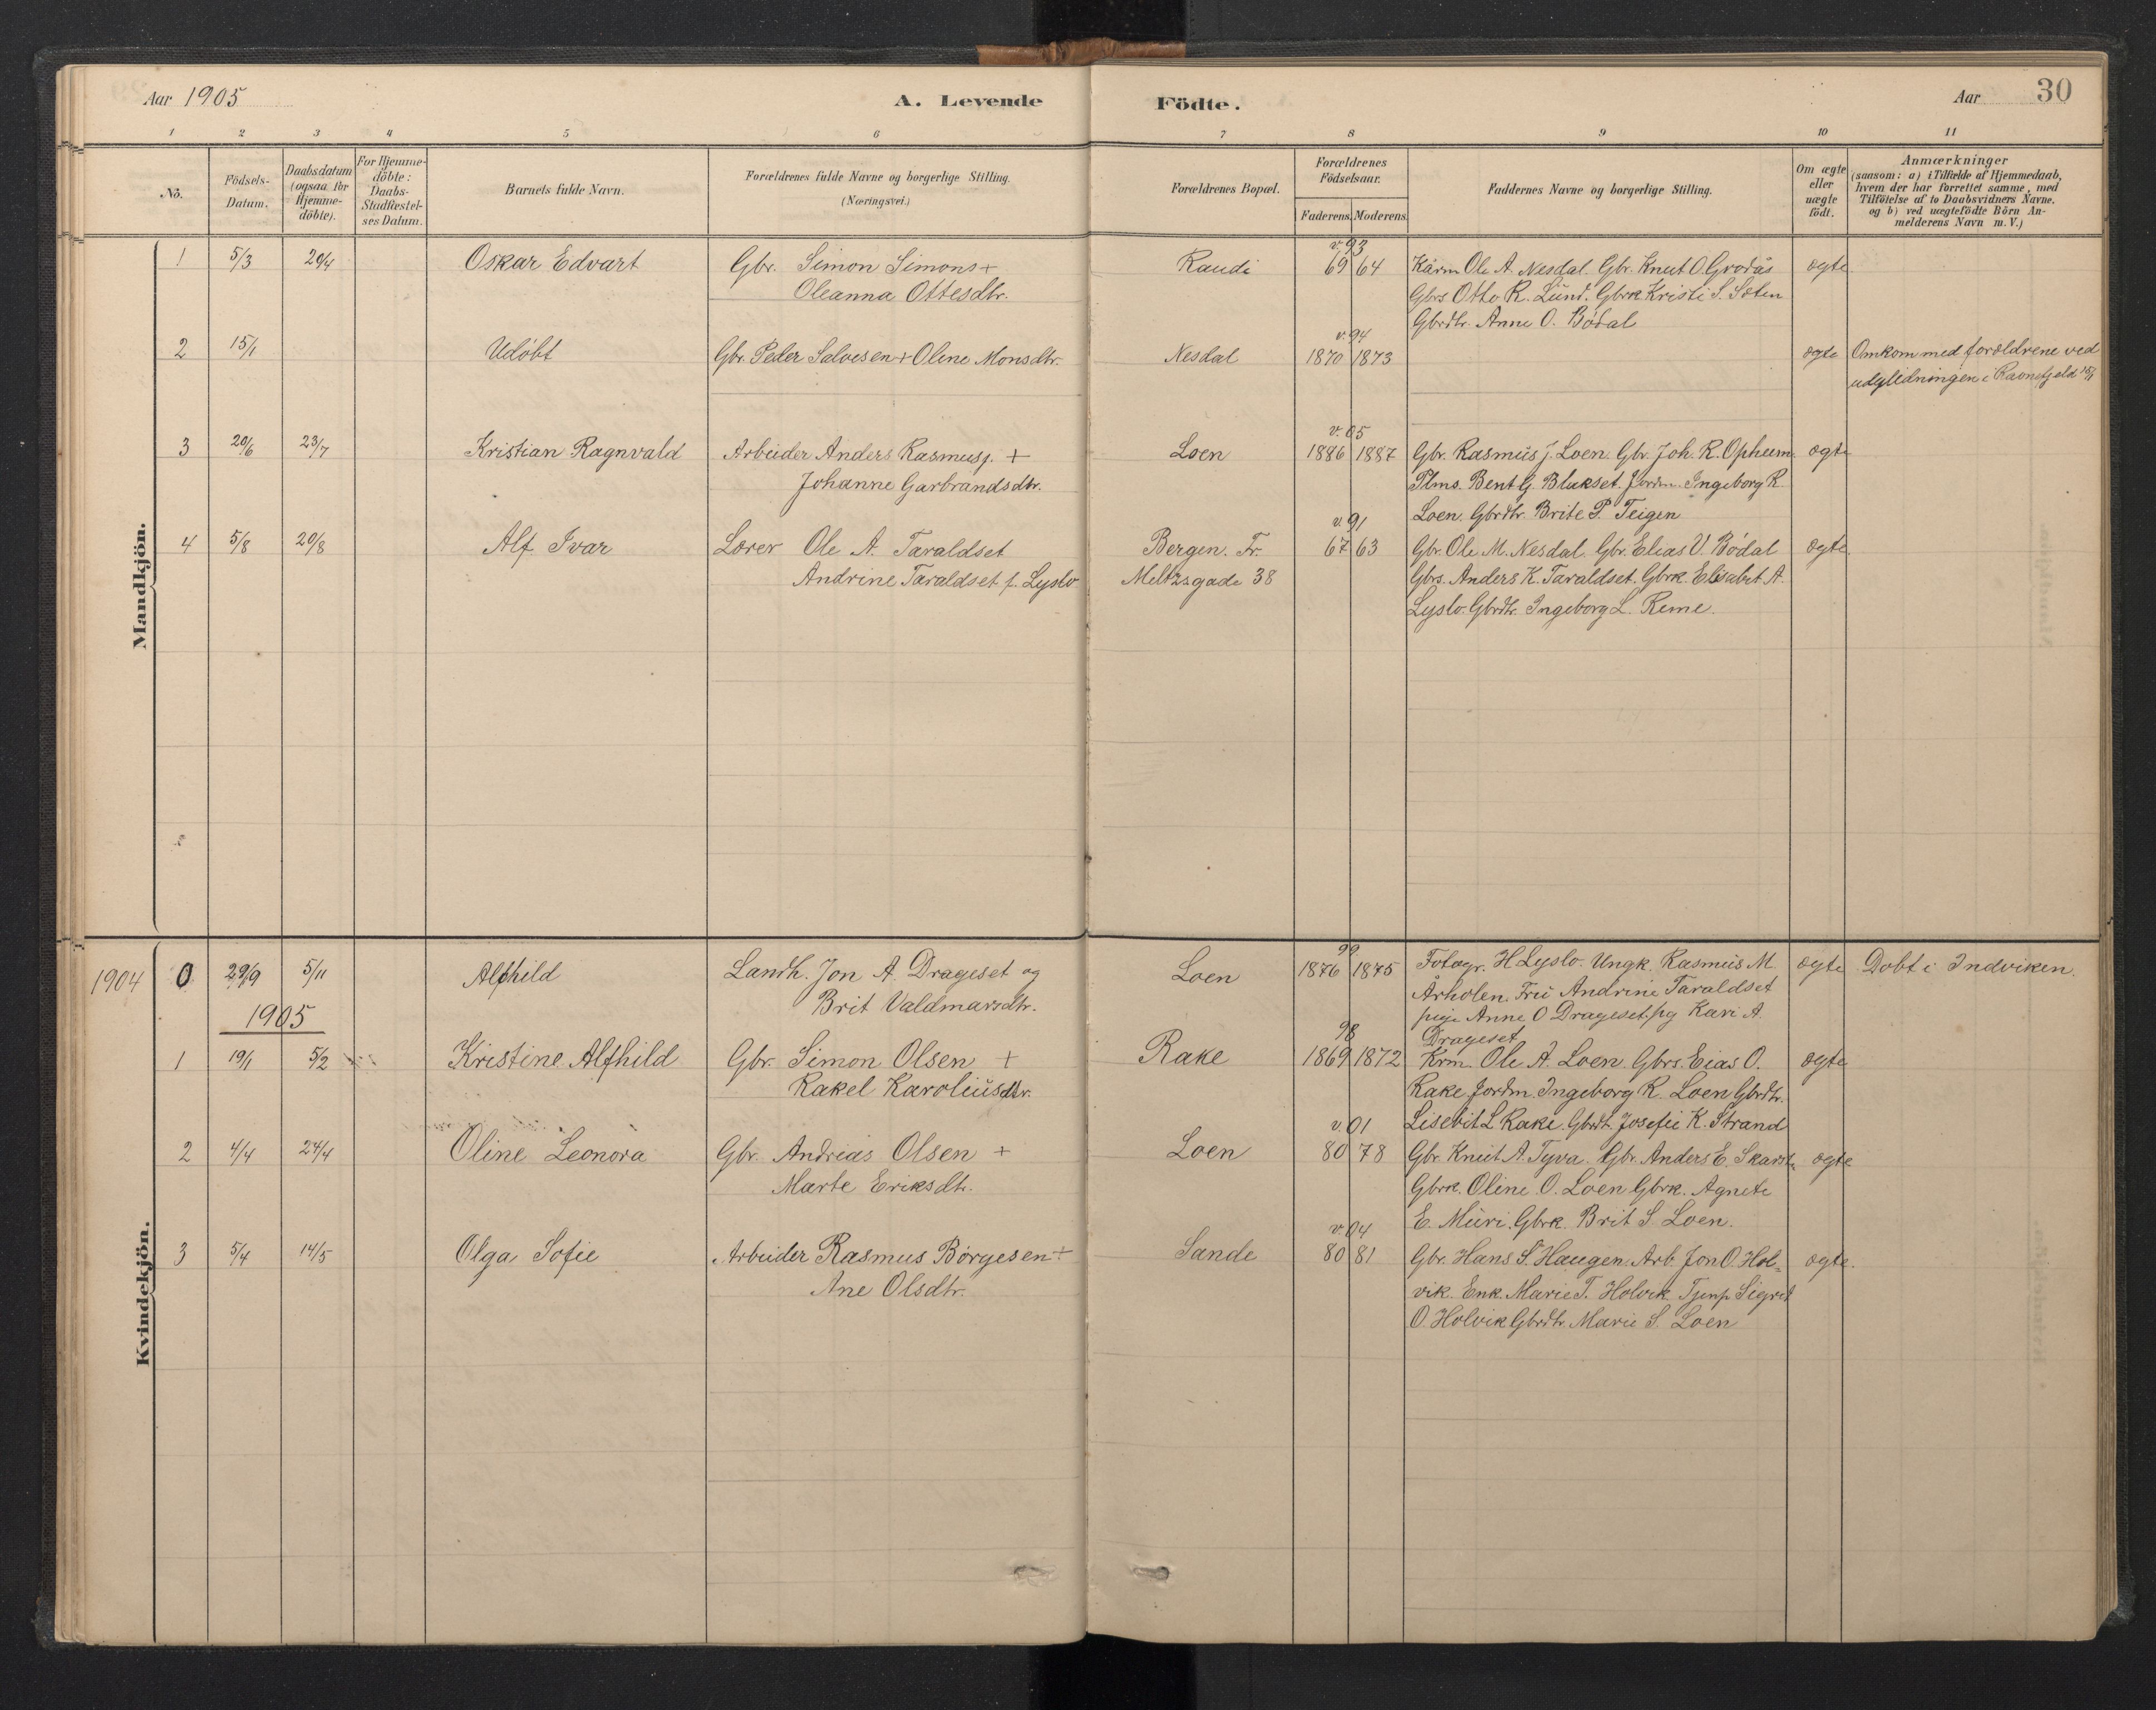 Aar 1905
A. Levende
Födte.
Aar
30
1 2 3 4 5 6 7 8 9 10 11
No.
Födsels-
Datum.
Daabsdatum
(ogsaa for
Hjemme-
döbte).
For Hjemme-
döbte:
Daabs-
Stadfæstel-
ses Datum.
Barnets fulde Navn.
Forældrenes fulde Navne og borgerlige Stilling.
(Næringsvei.)
Forældrenes Bopæl.
Forældrenes
Födselsaar.
Faderens. Moderens.
Faddernes Navne og borgerlige Stilling.
Om ægte
eller
uægte
födt.
Anmærkninger
(saasom: a) i Tilfælde af Hjemmedaab,
hvem der har forrettet samme, med
Tilföielse af to Daabsvidners Navne.
og b) ved uægtefödte Börn An-
melderens Navn m. V.)
Mandkjön.
v. 93
1 5/3 20/4 Oskar Edvart Gbr. Simon Simons + Raudi 69 64 Kårm Ole A. Nesdal. Gbr. Knut O. Grodås ægte
Oleanna Ottesdtr. Gbrs Otto R. Lund. Gbrk Kristi S. Sæten
Gbrdtr. Anne O. Bödal
v. 94
2 15/1 Udöbt Gbr. Peder Salvesen + Oline Monsdtr. Nesdal 1870 1873 ægte Omkom med forældrene ved
udglidningen i Ravnefjeld 15/1
v. 05
3 20/6 23/7 Kristian Ragnvald Arbeider Anders Rasmusj. + Loen 1886 1887 Gbr. Rasmus J. Loen. Gbr. Joh. R. Opheim. ægte
Johanne Garbrandsdtr. Plms. Bent G. Blakset. Jordm. Ingeborg R.
Loen. Gbrdtr. Brite P. Teigen
v. 91
4 5/8 20/8 Alf Ivar Lærer Ole A. Taraldset Bergen. Fr. 67 63 Gbr. Ole M. Nesdal. Gbr. Elias V. Bödal ægte.
Andrine Taraldset f. Lyslo Meltzsgade 38 Gbrs. Anders K. Taraldset. Gbrk. Elisabet A.
Lyslo. Gbrdtr. Ingeborg L. Reme.
Kvindekjön.
99
1904 0 29/9 5/11 Alfhild Landh. Jon A. Drageset og Loen 1876 1875 Fotogr. H Lyslo. Ungk. Rasmus M. ægte Döbt i Indviken.
Brit Valdmarsdtr. Årholen. Fru Andrine Taraldset
1905 pige Anne O Drageset. pg Kari A.
98 Drageset
1 19/1 5/2 Kristine Alfhild Gbr. Simon Olsen + Rake 1869 1872 Krm. Ole A. Loen. Gbrs. Eias O. ægte
Rakel Karoliusdtr. Rake. Jordm. Ingeborg R. Loen Gbrdtr.
v. 01 Lisebit L Rake. Gbrdt. Josefie K. Strand
2 4/4 24/4 Oline Leonora Gbr. Andreas Olsen + Loen 80 78 Gbr. Knut A. Tyva. Gbr. Anders E. Skarstn ægte
Marte Eriksdtr. Gbrk. Oline O. Loen Gbrk. Agnete
v. 04 E. Muri. Gbrk. Brit S. Loen.
3 5/4 14/5 Olga Sofie Arbeider Rasmus Börgesen + Sande 80 81 Gbr. Hans S. Haugen. Arb. Jon O. Hol=
Ane Olsdtr. vik. Enk. Marie T. Holvik Tjenp Sigrit ægte.
O. Holvik Gbrdtr. Marie S. Loen